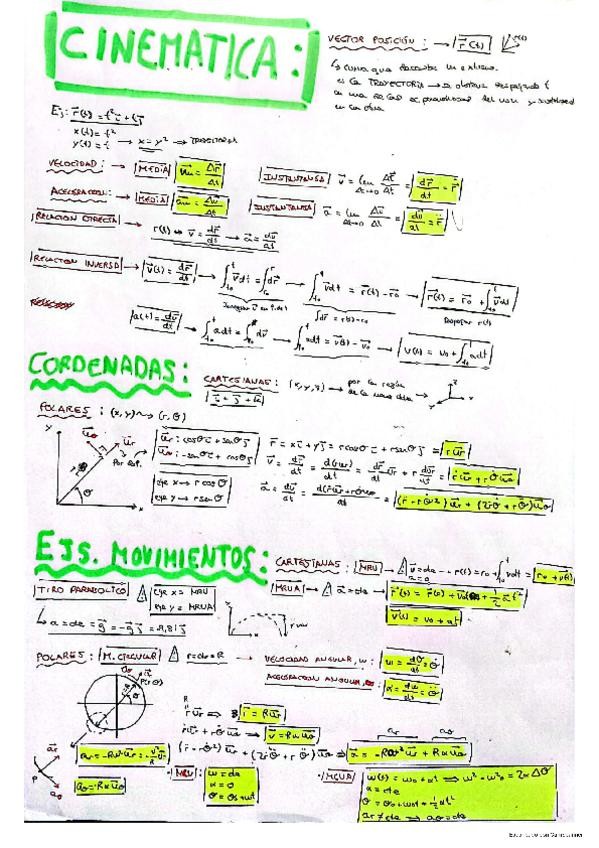 CINEMATICA:
VECTOR POSICIÓN: → r⃗(t)
↳ curva que describe un extremo.
es la TRAYECTORIA → se obtiene despejando t
en una de las
en la otra
Ej: r⃗(t) = t² i⃗ + t j⃗
x(t) = t²
y(t) = t → x = y² → TRAYECTORIA
VELOCIDAD: → MEDIA v⃗m = Δr⃗/Δt INSTANTANEA v⃗ = lim Δt→0 Δr⃗/Δt = dr⃗/dt = ṙ⃗
ACELERACION: → MEDIA a⃗m = Δv⃗/Δt INSTANTANEA a⃗ = lim Δt→0 Δv⃗/Δt = dv⃗/dt = r̈⃗
RELACION DIRECTA → r(t) ⇔ v⃗ = dr⃗/dt → a⃗ = dv⃗/dt
RELACION INVERSA → v⃗(t) = dr⃗/dt → ∫ v⃗dt = ∫ dr⃗ → ∫ v⃗dt = r⃗(t) - r⃗₀ → r⃗(t) = r⃗₀ + ∫ v⃗dt
∫dr⃗ = r(t) - r₀
Despejar r(t)
a(t) = dv⃗/dt → ∫ a dt = ∫ dv⃗ → ∫ a dt = v⃗(t) - v⃗₀ → v(t) = v₀ + ∫ a dt
CORDENADAS:
CARTESIANAS: (x, y, z) → por la regla de la mano dcha →
i⃗ + j⃗ + k⃗
POLARES: (x, y) → (r, θ)
u⃗r: cosθ i⃗ + senθ j⃗
u⃗θ: -senθ i⃗ + cosθ j⃗
eje x → r cosθ
eje y → r senθ
r⃗ = x i⃗ + y j⃗ = r cosθ i⃗ + r senθ j⃗ = r u⃗r
v⃗ = dr⃗/dt = d(r u⃗r)/dt = dr/dt u⃗r + r du⃗r/dt = ṙ u⃗r + r θ̇ u⃗θ
a⃗ = dv⃗/dt = d(ṙ u⃗r + r θ̇ u⃗θ)/dt = (r̈ - r θ̇²) u⃗r + (2ṙ θ̇ + r θ̈) u⃗θ
EJS. MOVIMIENTOS:
CARTESIANAS: MRU → ⚠ v⃗ = cte → r(t) = r₀ + ∫ v dt = r₀ + v(t)
a = 0
MRUA → ⚠ a⃗ = cte → r⃗(t) = r⃗(0) + v₀t + ½ a⃗ t²
v⃗(t) = v₀ + at
TIRO PARABOLICO ⚠ eje x = MRU
eje y = MRUA
↳ a = cte = g⃗ = -g j⃗ = -9,81 j⃗
POLARES: M. CIRCULAR ⚠ r = cte = R → VELOCIDAD ANGULAR, ω: ω = dθ/dt = θ̇
ACELERACION ANGULAR, α: α = dω/dt = θ̈
P(r, θ)
r u⃗r ⇒ r⃗ = R u⃗r
ṙ u⃗r + r θ̇ u⃗θ ⇒ v⃗ = R ω u⃗θ
(r̈ - r θ̇²) u⃗r + (2ṙ θ̇ + r θ̈) u⃗θ ⇒ a⃗ = -Rω² u⃗r + Rα u⃗θ
ar = -Rω² u⃗r = -v²/R u⃗r
aθ = Rα u⃗θ
MRU: ω = cte
α = 0
θ = θ₀ + ωt
MCUA: ω(t) = ω₀ + αt ⇒ ω² - ω₀² = 2αΔθ
α = cte
θ = θ₀ + ω₀t + ½ αt²
ar ≠ cte ⇒ aθ = cte